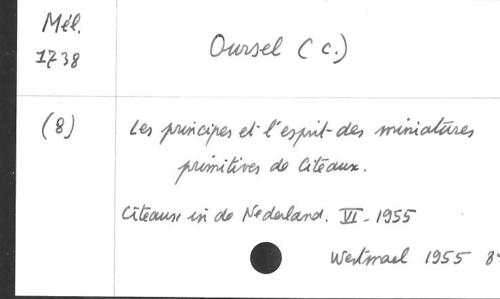 Mél.
1738
Oursel (C.)
(8)
Les principes et l'esprit des miniatures
primitives de Cîteaux.
Cîteaux in de Nederland. VI - 1955
Westmael 1955 8°